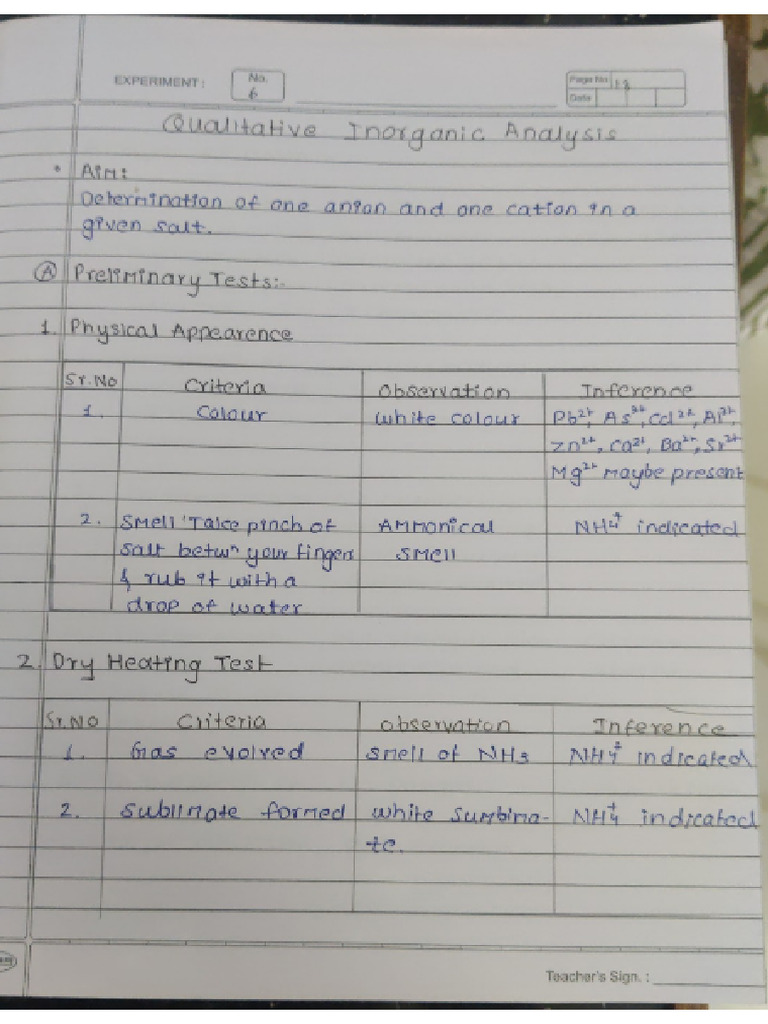 EXPERIMENT :
No.
6
Page No. 13
Date
Qualitative Inorganic Analysis
• Aim:
Determination of one anion and one cation in a
given salt.
Ⓐ Preliminary Tests:-
1. Physical Appearence
Sr.No Criteria Observation Inference
1. Colour White colour Pb²⁺, As³⁺, Cd²⁺, Al³⁺,
Zn²⁺, Ca²⁺, Ba²⁺, Sr²⁺
Mg²⁺ maybe present
2. Smell 'Take pinch of Ammonical NH₄⁺ indicated
salt betwⁿ your finger smell
& rub it with a
drop of water
2. Dry Heating Test
Sr.No Criteria Observation Inference
1. Gas evolved smell of NH₃ NH₄⁺ indicated
2. Sublimate formed white sumbina- NH₄⁺ indicated
te.
Teacher's Sign. :